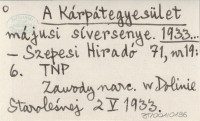 A Kárpátegyesület
májusi síversenye. 1933...
- Szepesi Hiradó 71, nr 19:
6. TNP
Zawody narc. w Dolinie
Staroleśnej 2 V 1933.